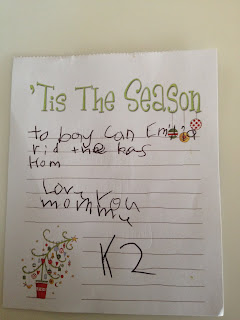 'Tis The Season
to bay can Emila
rid the bas
Hom
Love You
mommy
K2